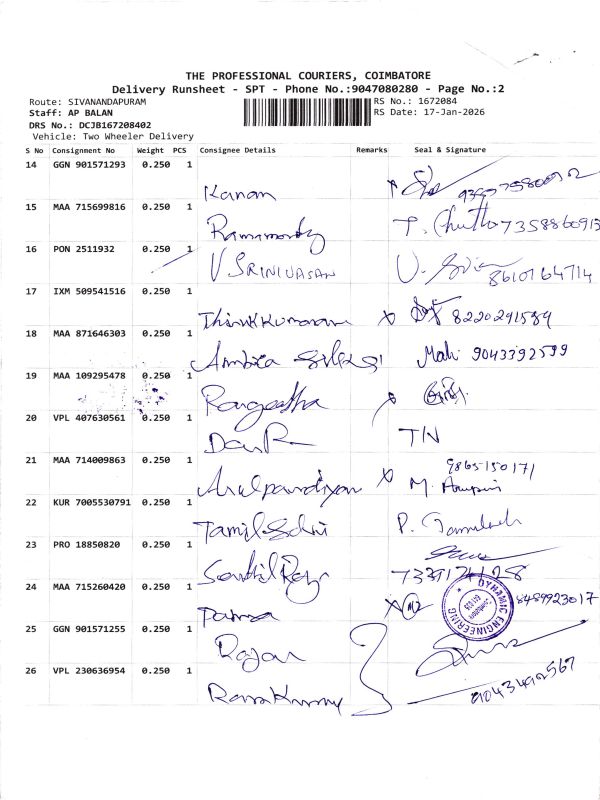 THE PROFESSIONAL COURIERS, COIMBATORE
Delivery Runsheet - SPT - Phone No.:9047080280 - Page No.:2
Route: SIVANANDAPURAM
Staff: AP BALAN
DRS No.: DCJB167208402
Vehicle: Two Wheeler Delivery
RS No.: 1672084
RS Date: 17-Jan-2026
S No Consignment No Weight PCS Consignee Details Remarks Seal & Signature
14 GGN 901571293 0.250 1
Kanan
15 MAA 715699816 0.250 1
16 PON 2511932 0.250 1
V SRINIVASAN 8610164714
17 IXM 509541516 0.250 1
8220291589
18 MAA 871646303 0.250 1
Ambica Mahi 9043392599
19 MAA 109295478 0.250 1
20 VPL 407630561 0.250 1
TN
21 MAA 714009863 0.250 1
9865150171
Arulpandiyan M.
22 KUR 7005530791 0.250 1
Tamil Selvi P.
23 PRO 18850820 0.250 1
24 MAA 715260420 0.250 1
DYNAMIC ENGINEERING
8489923017
25 GGN 901571255 0.250 1
Rajan
26 VPL 230636954 0.250 1